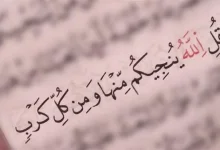 قُلِ اللَّهُ يُنَجِّيكُم مِّنْهَا وَمِن كُلِّ كَرْبٍ